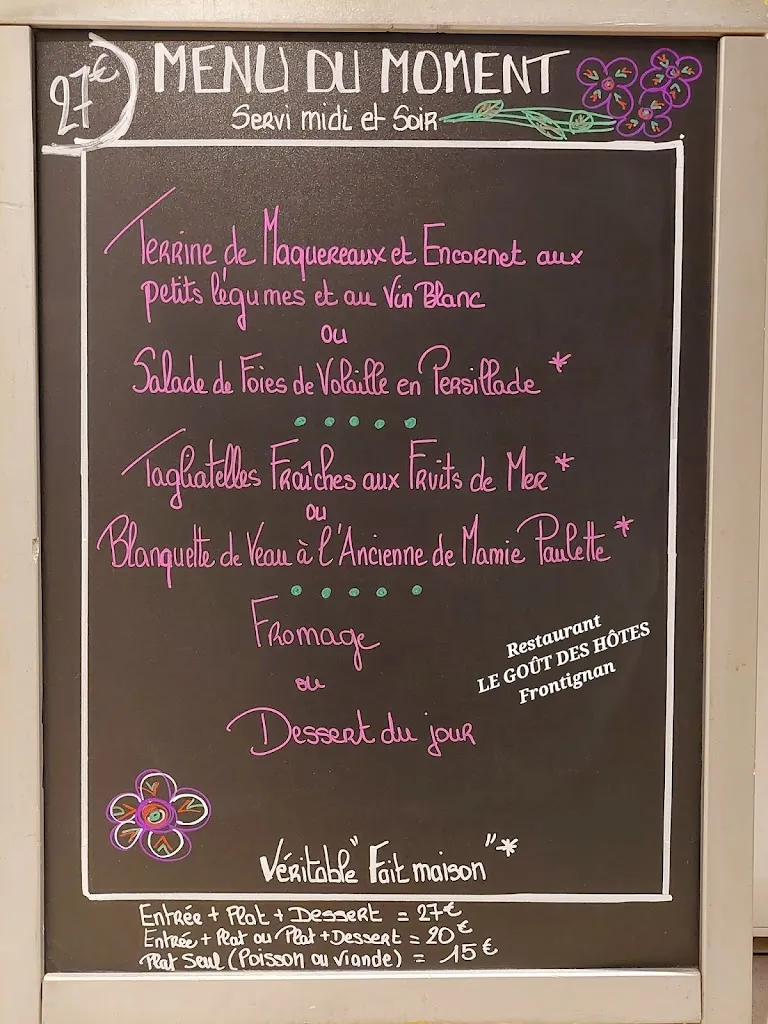 27€
MENU DU MOMENT
Servi midi et Soir
Terrine de Maquereaux et Encornet aux
petits légumes et au Vin Blanc
ou
Salade de Foies de Volaille en Persillade *
Tagliatelles Fraîches aux Fruits de Mer *
ou
Blanquette de Veau à l'Ancienne de Mamie Paulette *
Fromage
ou
Dessert du jour
Restaurant
LE GOÛT DES HÔTES
Frontignan
Véritable "Fait maison" *
Entrée + Plat + Dessert = 27€
Entrée + Plat ou Plat + Dessert = 20€
Plat Seul (Poisson ou viande) = 15€